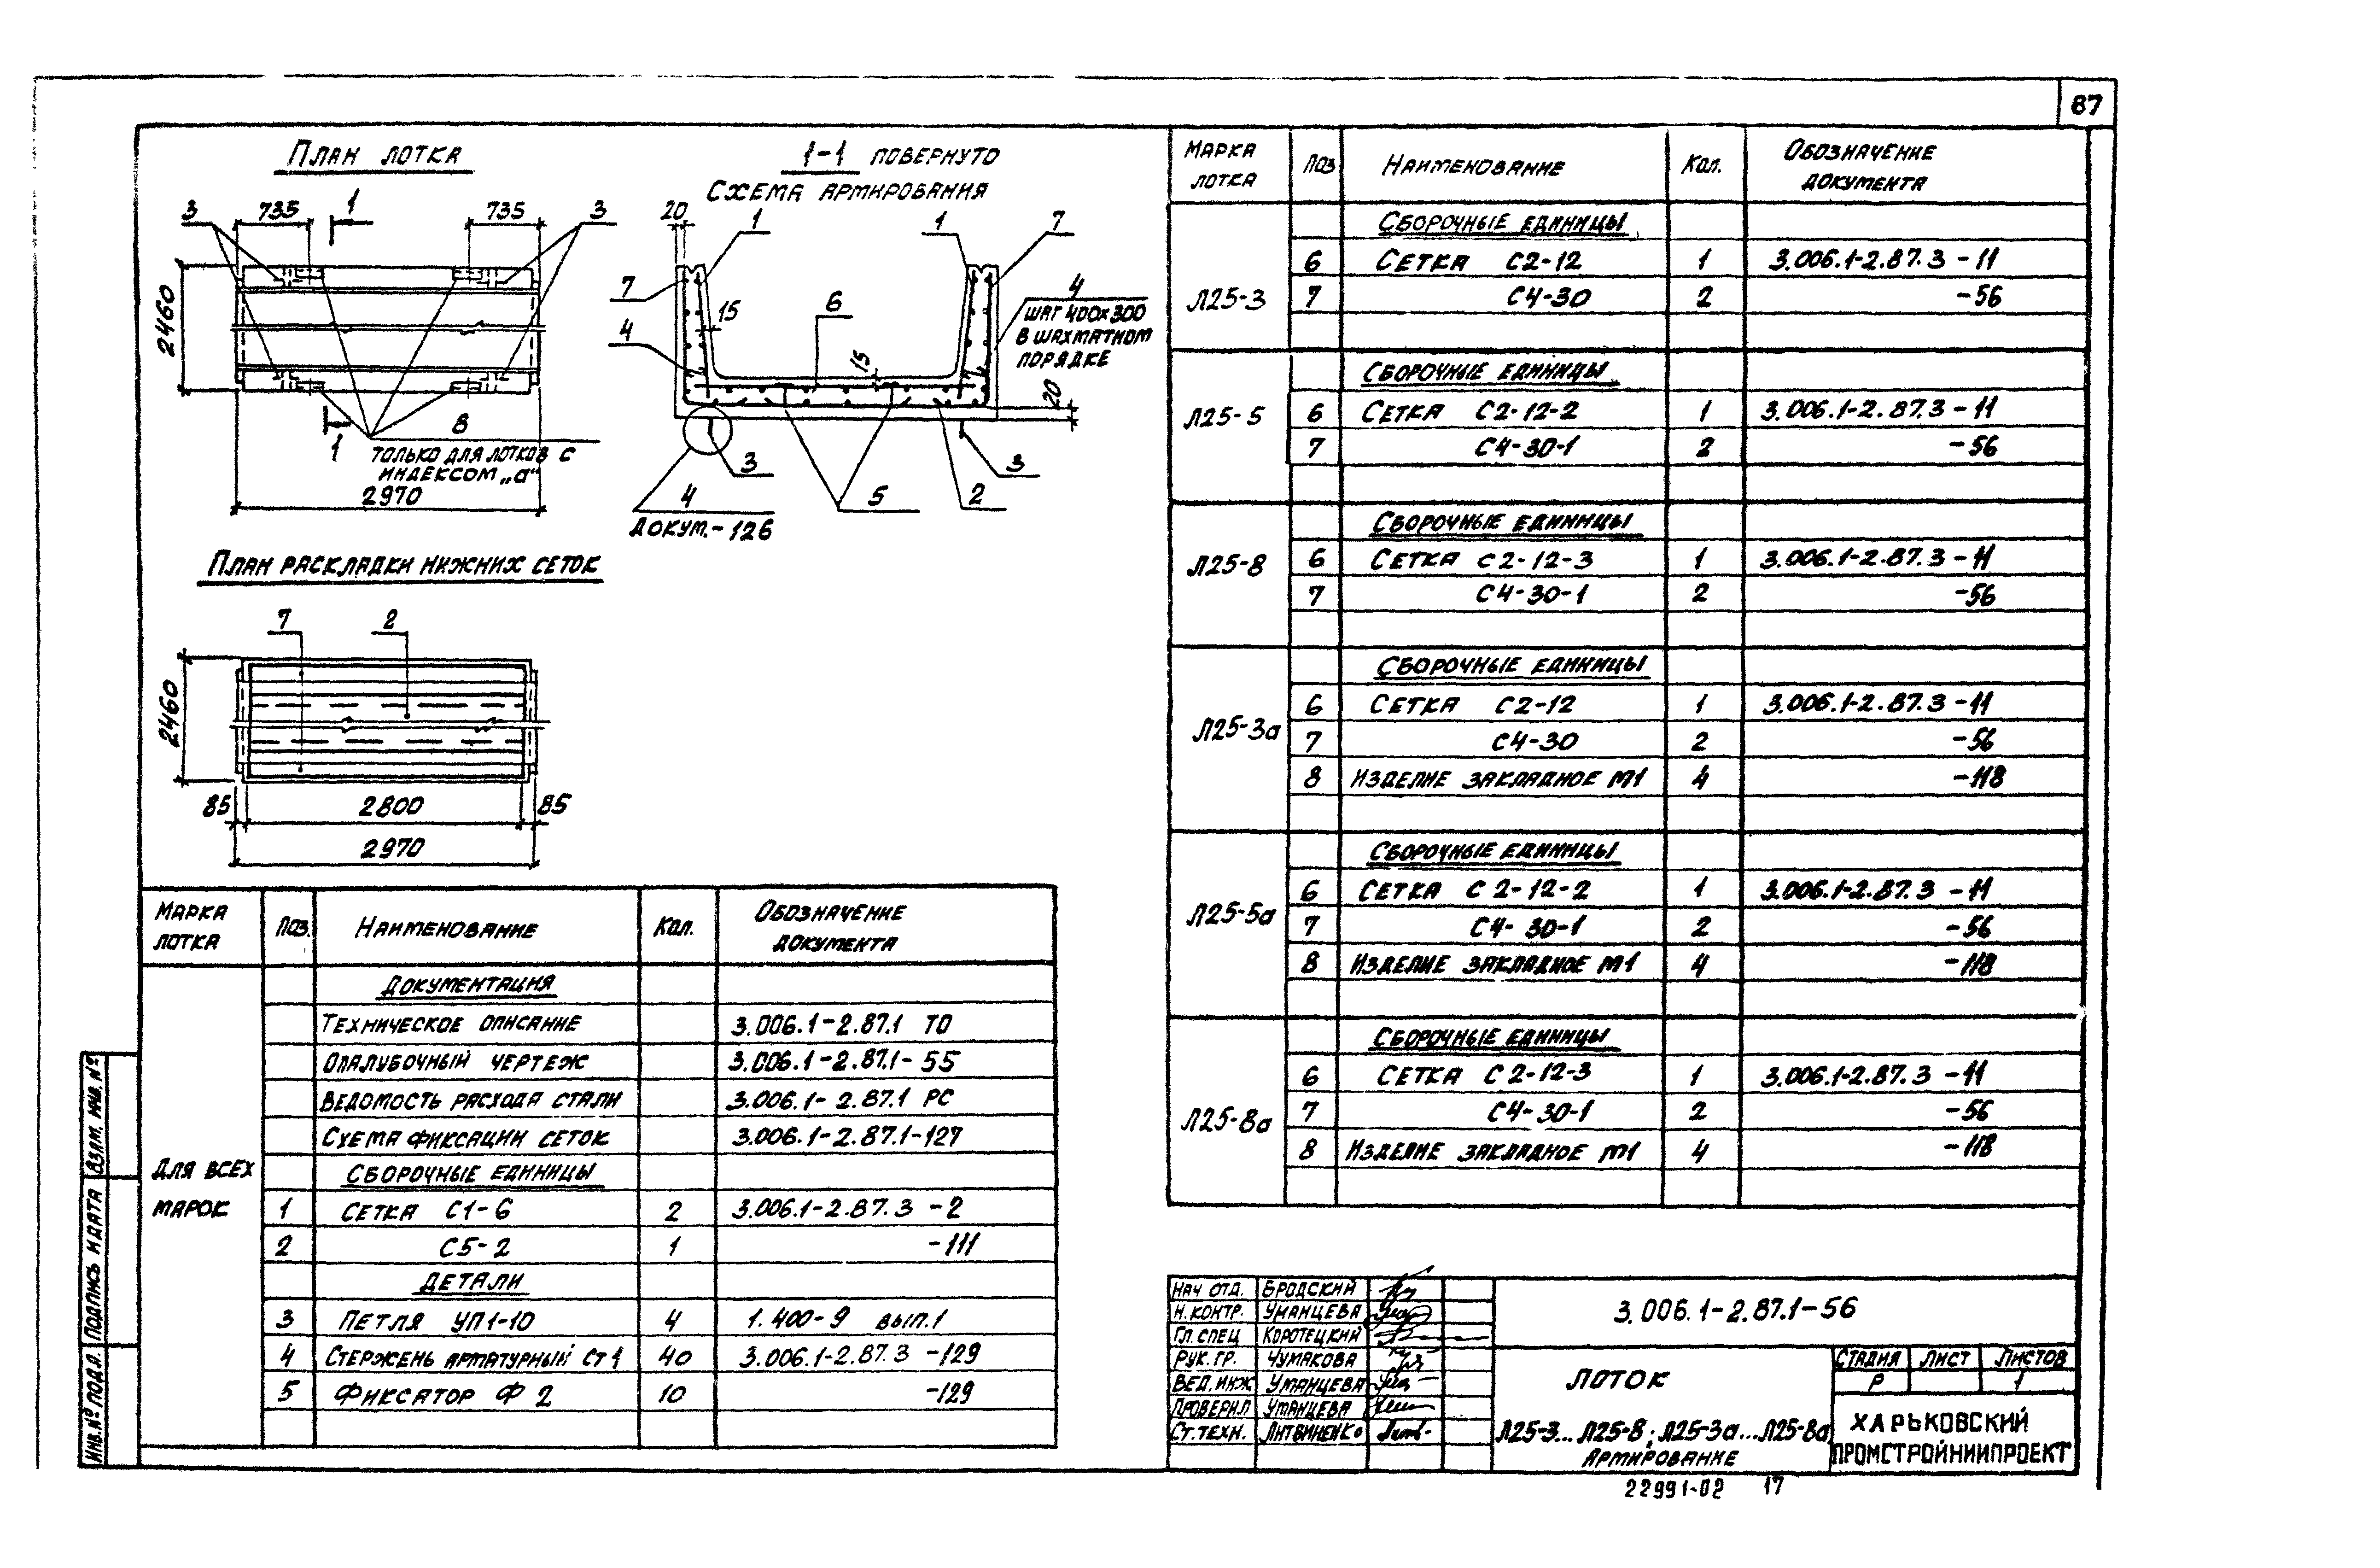 87
План лотка
3 735 1 735 3
2460
8
1 только для лотков с
индексом „а“
2970
1-1 повернуто
Схема армирования
20 1 1 7
7 15 6 4
4 15 шаг 400х300
в шахматном
порядке
20
3 3
4 5 2
докум.-126
План раскладки нижних сеток
7 2
2460
85 2800 85
2970
Марка лотка Поз. Наименование Кол. Обозначение документа
Для всех марок
Документация
Техническое описание 3.006.1-2.87.1 ТО
Опалубочный чертеж 3.006.1-2.87.1-55
Ведомость расхода стали 3.006.1-2.87.1 РС
Схема фиксации сеток 3.006.1-2.87.1-127
Сборочные единицы
1 Сетка С1-6 2 3.006.1-2.87.3 -2
2 С5-2 1 -111
Детали
3 Петля УП1-10 4 1.400-9 вып.1
4 Стержень арматурный Ст 1 40 3.006.1-2.87.3 -129
5 Фиксатор Ф 2 10 -129
Марка лотка Поз Наименование Кол. Обозначение документа
Л25-3
Сборочные единицы
6 Сетка С2-12 1 3.006.1-2.87.3 -11
7 С4-30 2 -56
Л25-5
Сборочные единицы
6 Сетка С2-12-2 1 3.006.1-2.87.3 -11
7 С4-30-1 2 -56
Л25-8
Сборочные единицы
6 Сетка С2-12-3 1 3.006.1-2.87.3 -11
7 С4-30-1 2 -56
Л25-3а
Сборочные единицы
6 Сетка С2-12 1 3.006.1-2.87.3 -11
7 С4-30 2 -56
8 Изделие закладное М1 4 -118
Л25-5а
Сборочные единицы
6 Сетка С2-12-2 1 3.006.1-2.87.3 -11
7 С4-30-1 2 -56
8 Изделие закладное М1 4 -118
Л25-8а
Сборочные единицы
6 Сетка С2-12-3 1 3.006.1-2.87.3 -11
7 С4-30-1 2 -56
8 Изделие закладное М1 4 -118
Нач отд. Бродский
Н.контр. Уманцева
Гл.спец Коротецкий
Рук.гр. Чумакова
Вед.инж Уманцева
Проверил Уманцева
Ст.техн. Литвиненко
3.006.1-2.87.1-56
Лоток
Л25-3...Л25-8; Л25-3а...Л25-8а
Армирование
Стадия Лист Листов
Р 1
Харьковский
Промстройниипроект
22991-02 17
Взам. инв. №
Подпись и дата
Инв. № подл.